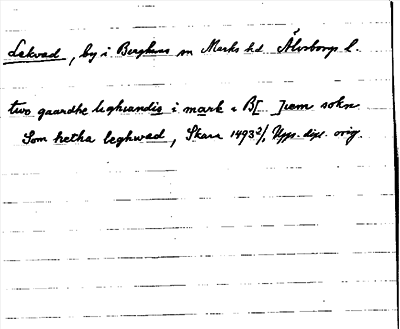 Lekvad, by i Berghems sn Marks hd Älvsborgs l.
two gaardhe leghrandis i mark i B[ ]rem sokn
Som hetha leghwad, Skara 1493 2/1, Upps. dipl. orig.